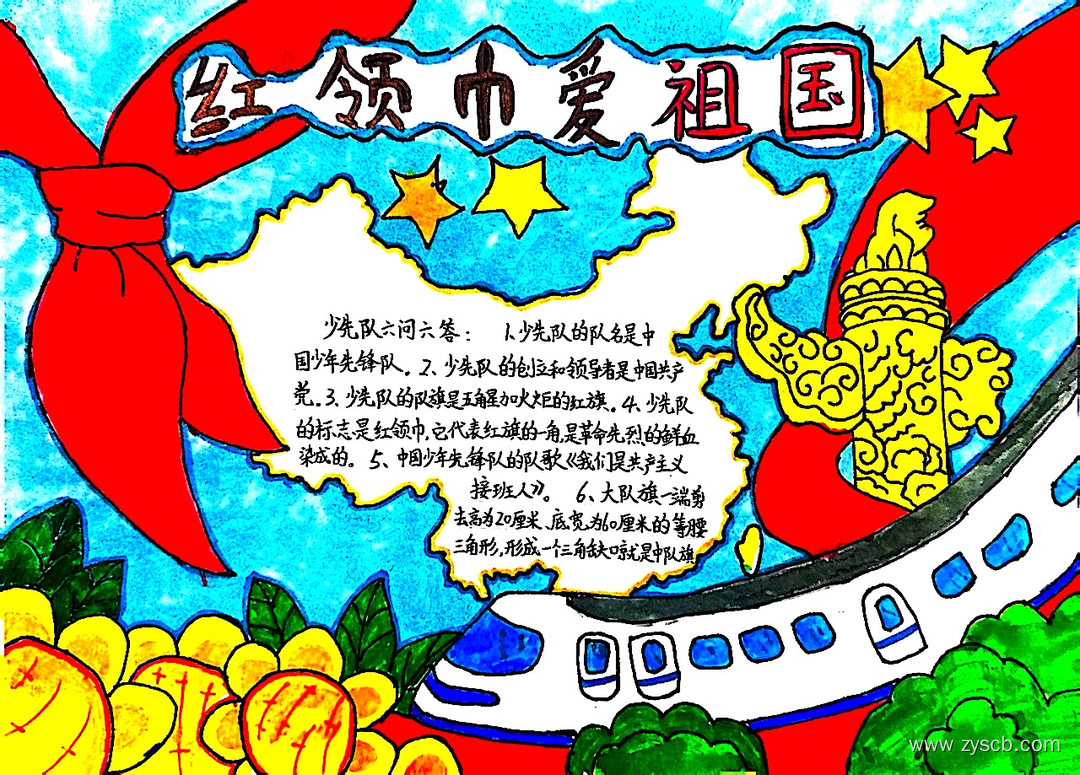 红领巾爱祖国
少先队六问六答： 1、少先队的队名是中
国少年先锋队。2、少先队的创立和领导者是中国共产
党。3、少先队的队旗是五角星加火炬的红旗。4、少先队
的标志是红领巾,它代表红旗的一角,是革命先烈的鲜血
染成的。 5、中国少年先锋队的队歌《我们是共产主义
接班人》。 6、大队旗一端剪
去高为20厘米、底宽为60厘米的等腰
三角形,形成一个三角缺口就是中队旗
www.zyscb.com